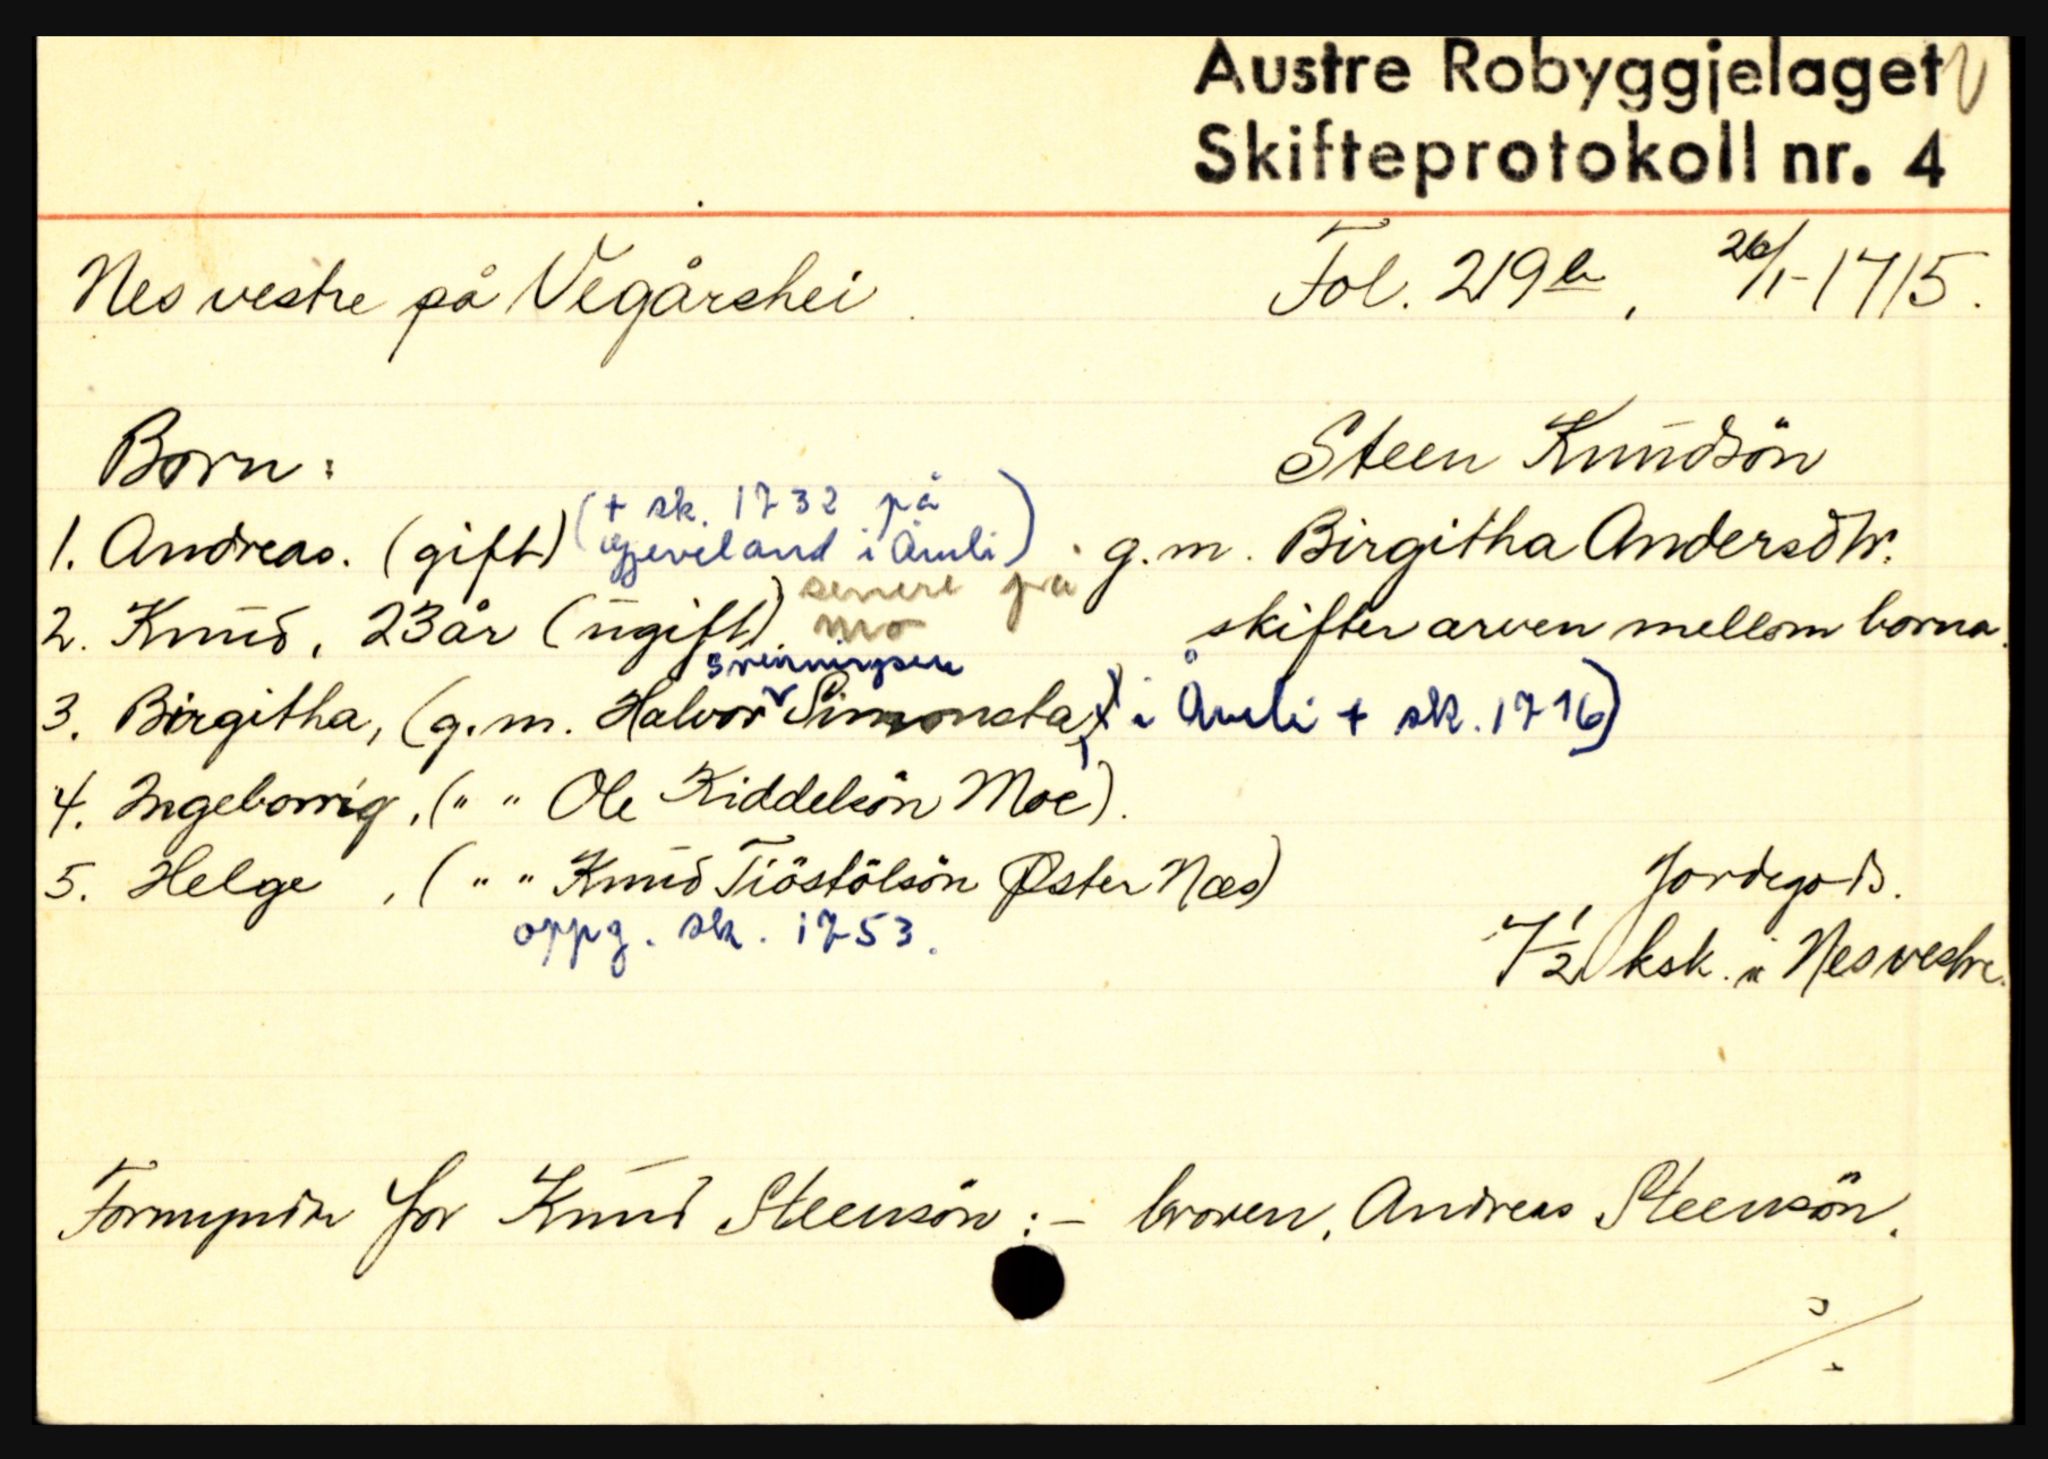 Austre Robyggjelaget
Skifteprotokoll nr. 4
Nes vestre på Vegårshei. Fol. 219b, 26/1-1715.
Born: Steen Knudsön
1. Andreas. (gift) (+ sk. 1732 på Gjeveland i Åmli) g.m. Birgitha Andersdtr.
2. Knud, 23 år (ugift). senere på Mo skifter arven mellom borna.
3. Birgitha, (g.m. Halvor Svenningsen Simonsta) i Åmli + sk. 1716)
4. Ingeborrig, (" " Ole Kiddelsön Moe).
5. Helge, (" " Knud Tiöstölsön Øster Næs) Jordegods.
oppg. sk. 1753. 7½ ksk. i Nes vestre.
Formynder for Knud Steensön :- broren, Andreas Steensön.